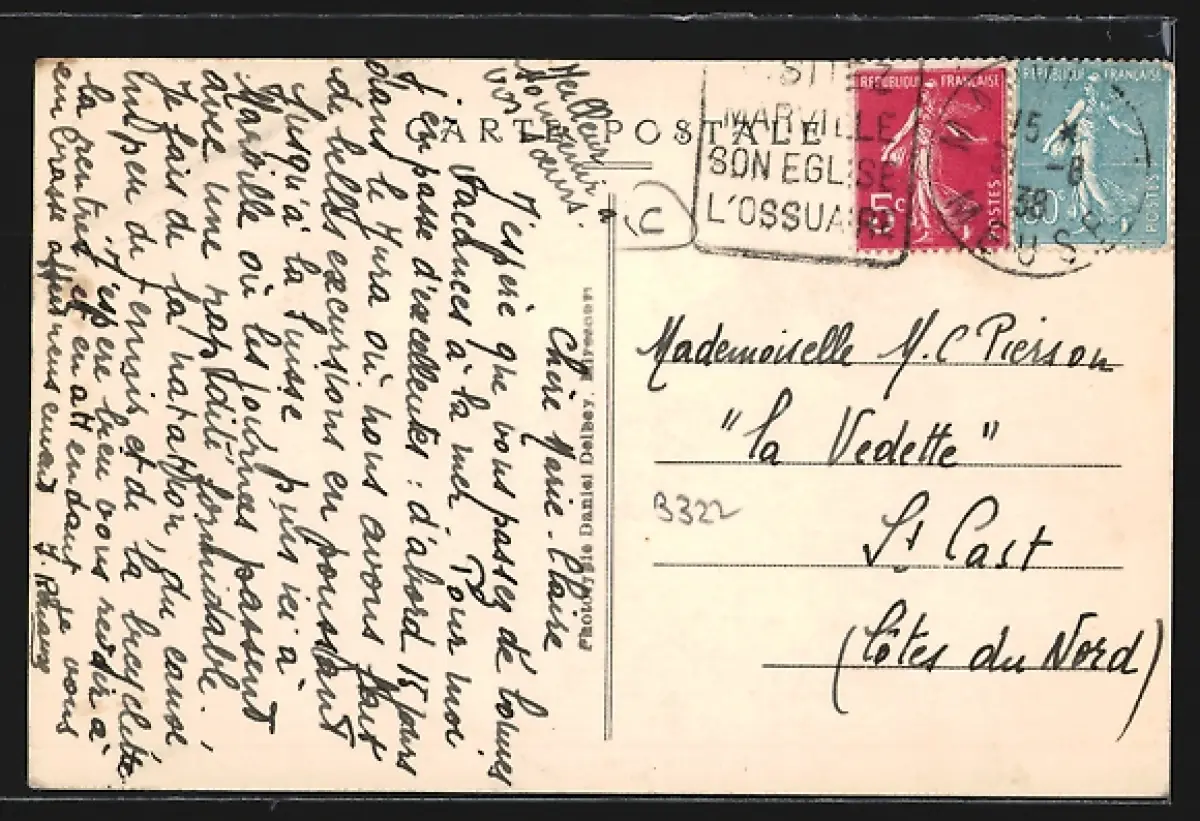 CARTE POSTALE
Meilleurs
souvenirs
vos
Chère Marie-Claire
J'espère que vous passez de bonnes
vacances à la mer. Pour moi
j'en passe d'excellentes : d'abord 15 jours
dans le Jura où nous avons fait
de belles excursions en poussant
jusqu'à la Suisse puis ici à
Marville où les journées passent
avec une rapidité formidable.
Je fais de la natation, du canoë
un peu de tennis et de la bicyclette
J'espère bien vous revoir à
la rentrée et en attendant je vous
embrasse affectueusement
Phototypie Daniel Delboy, Mirecourt
SITEZ
MARVILLE
SON EGLISE
L'OSSUAIRE
REPUBLIQUE FRANÇAISE
5c
POSTES
REPUBLIQUE FRANÇAISE
POSTES
15
-8
38
MEUSE
Mademoiselle M. C Pierson
"la Vedette"
B322
St Cast
(Côtes du Nord)